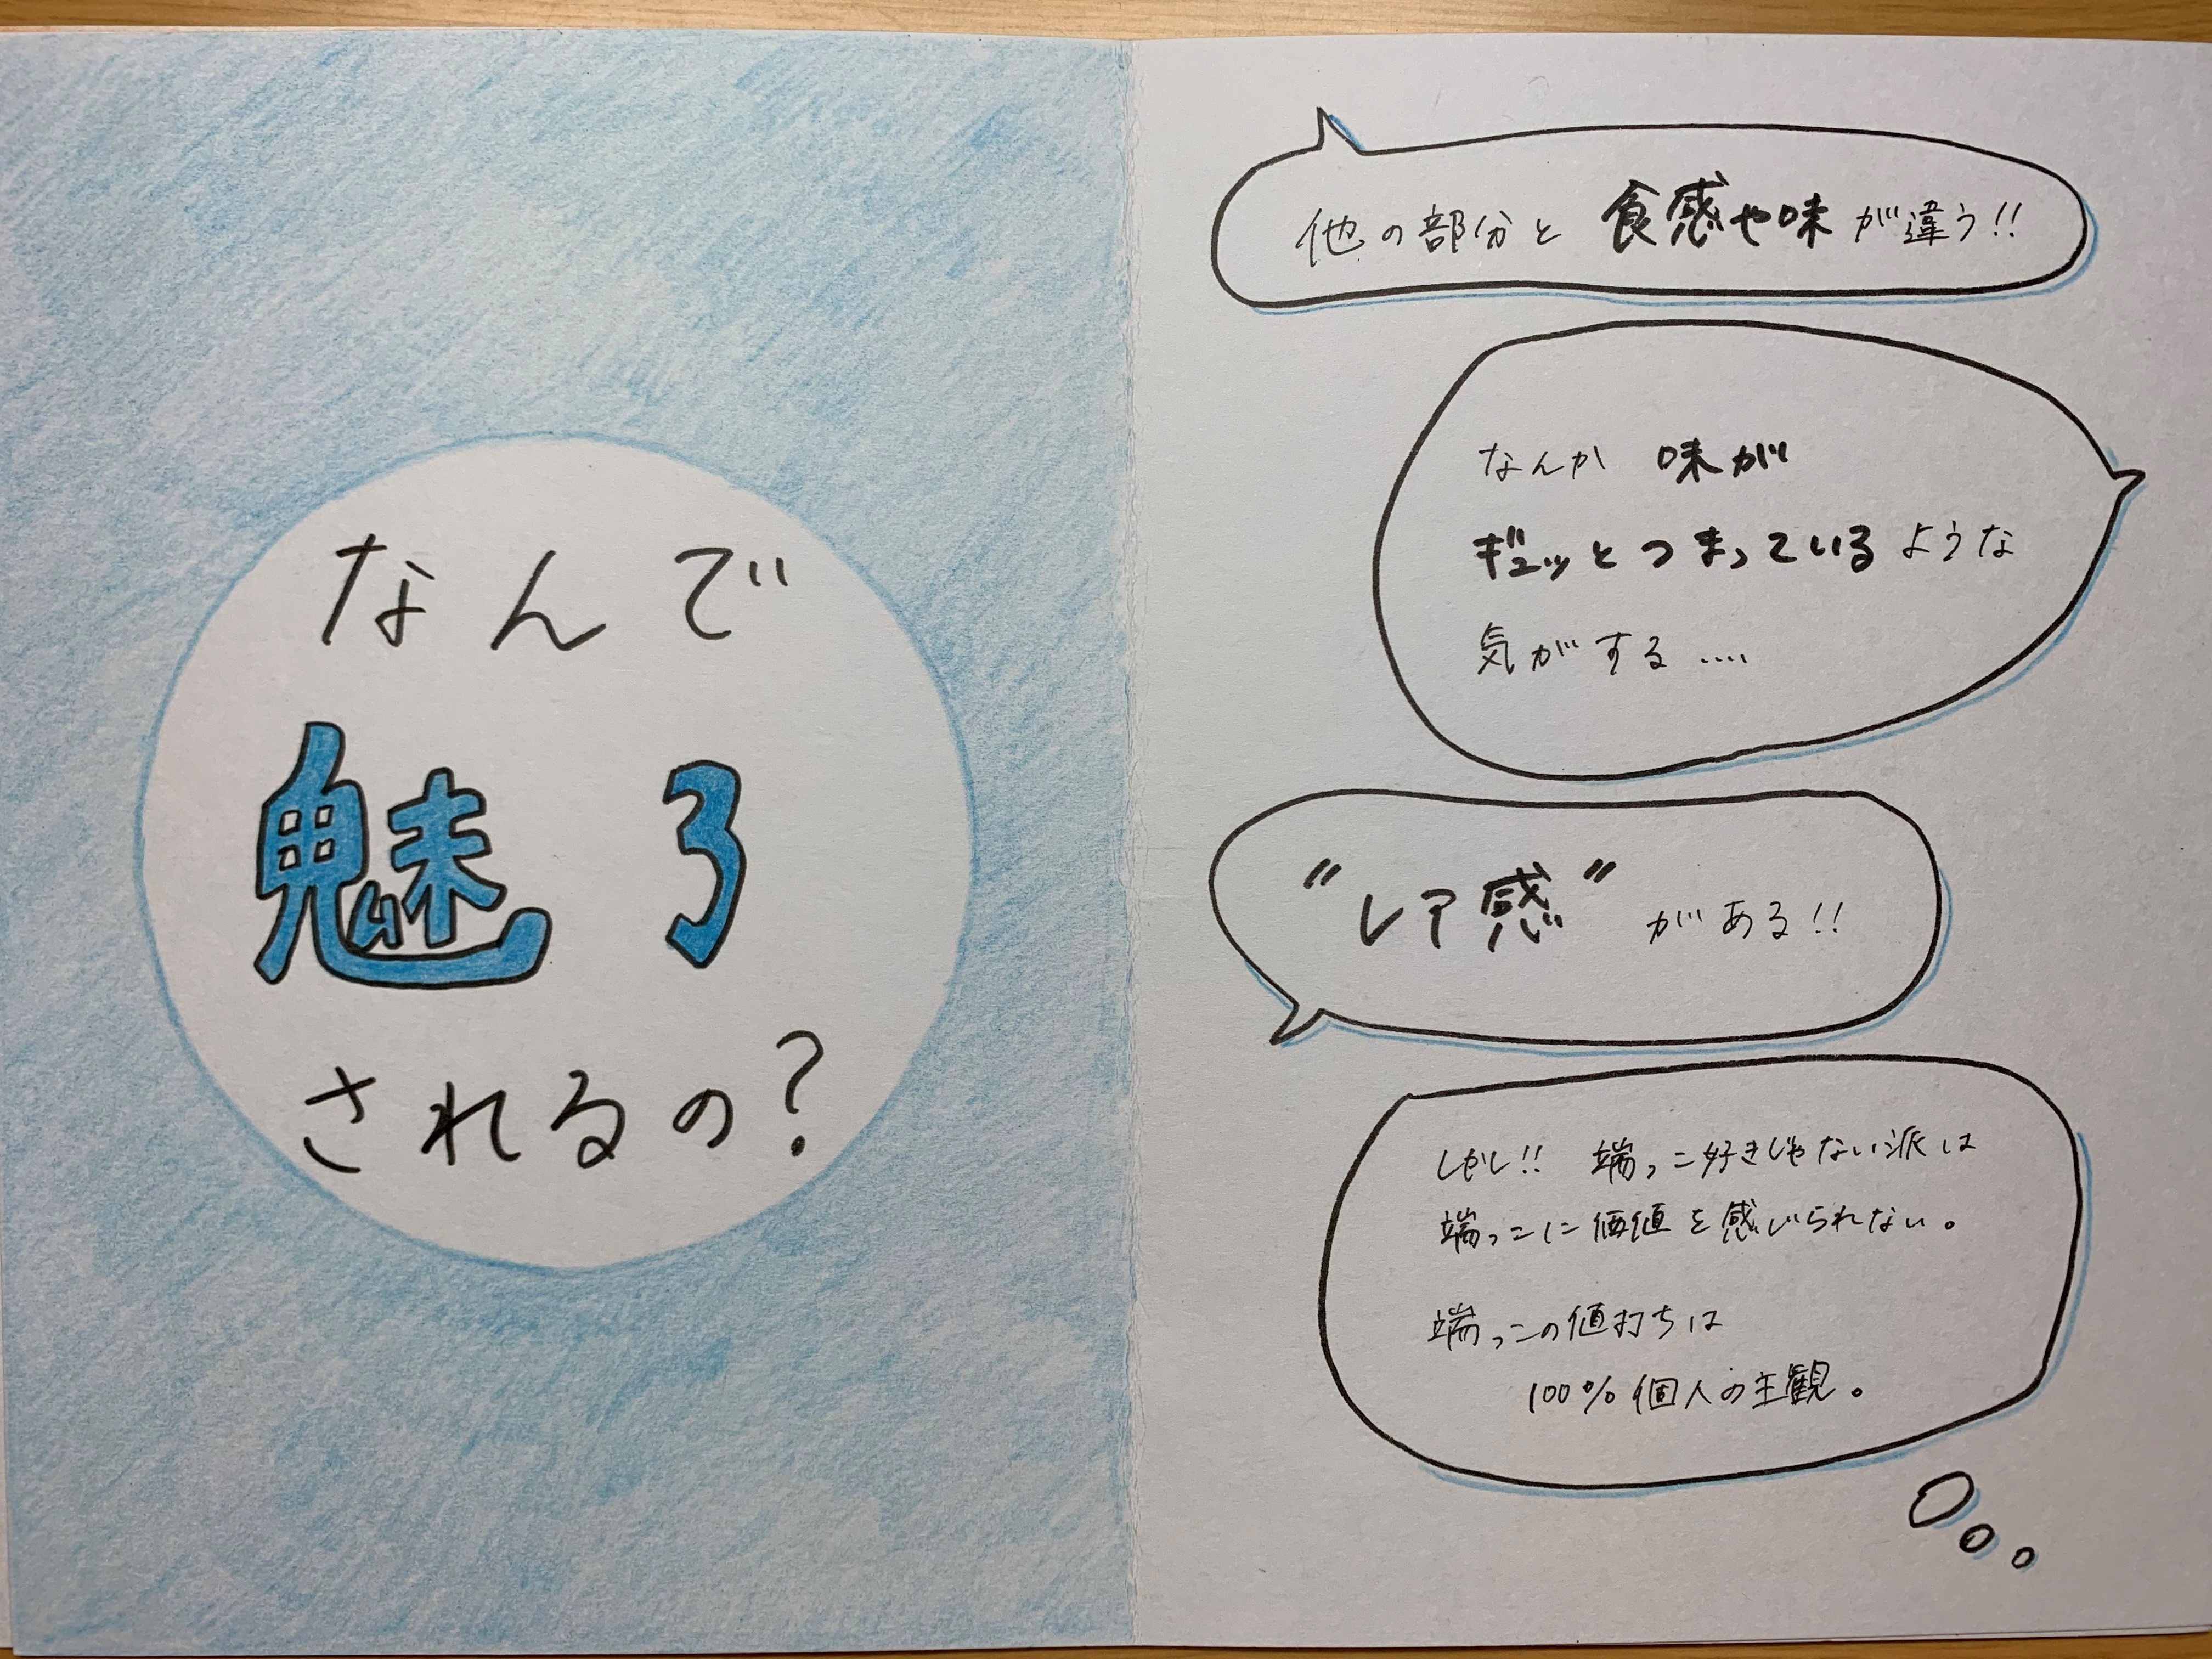 なんで
魅了
されるの?
他の部分と 食感や味が違う!!
なんか 味が
ギュッとつまっているような
気がする....
"レア感"がある!!
しかし!! 端っこ好きじゃない派は
端っこに価値を感じられない。
端っこの値打ちは
100%個人の主観。